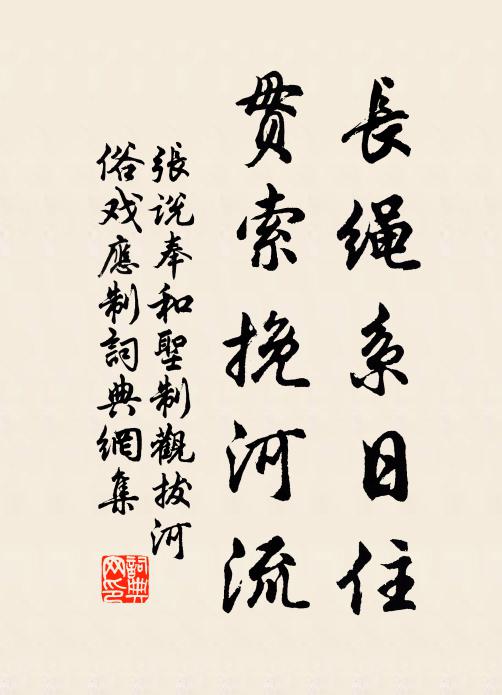 長绳系日住
贯索挽河流
張说奉和聖制觀拔河
俗戏應制詞典網集
詞典网印